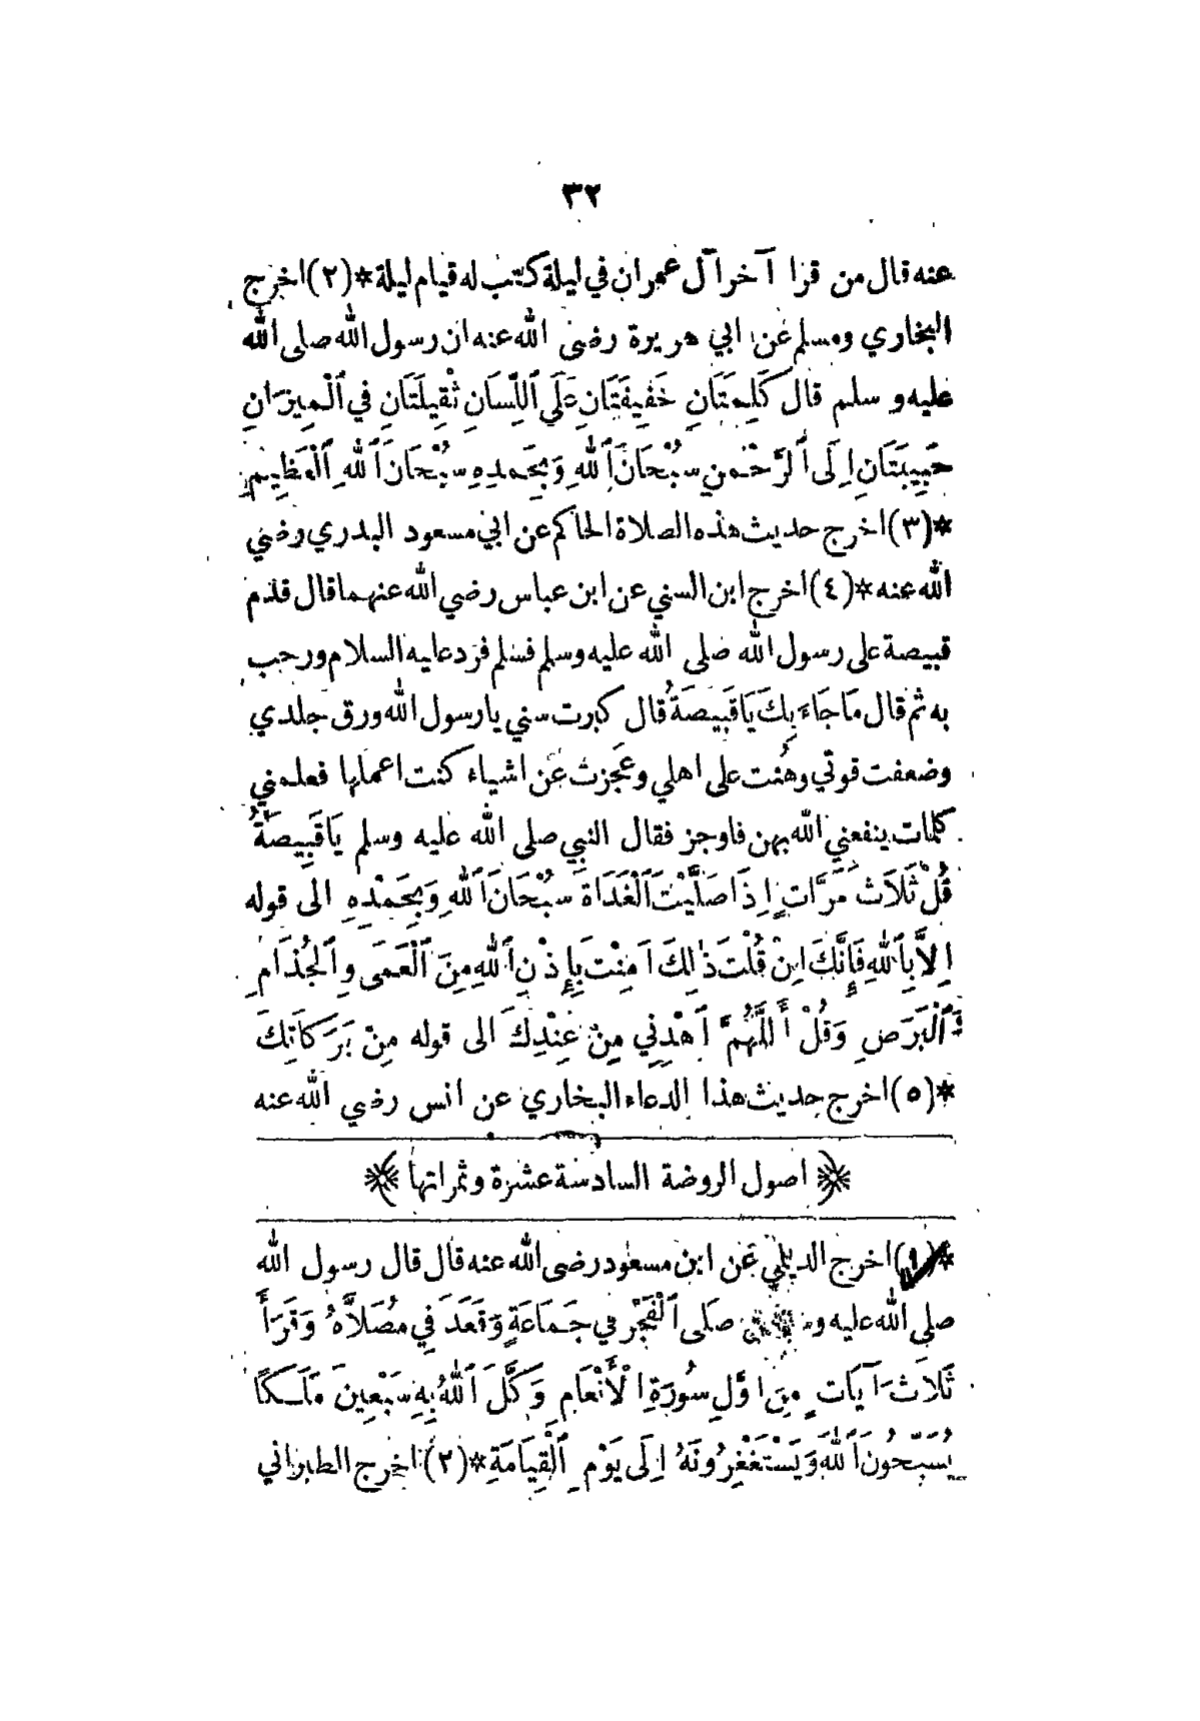 ٣٢
عنه قال من قرا آخر آل عمران في ليلة كتب له قيام ليلة *(٢) اخرج
البخاري ومسلم عن ابي هريرة رضى الله عنه ان رسول الله صلى الله
عليه و سلم قال كَلِمَتَانِ خَفِيفَتَانِ عَلَى ٱللِّسَانِ ثَقِيلَتَانِ فِي ٱلْمِيزَانِ
حَبِيبَتَانِ اِلَى ٱلرَّحْمنِ سُبْحَانَ ٱللهِ وَبِحَمدِهِ سُبْحَانَ ٱللهِ ٱلْعَظِيمِ
*(٣) اخرج حديث هذه الصلاة الحاكم عن ابي مسعود البدري رضي
الله عنه *(٤) اخرج ابن السني عن ابن عباس رضي الله عنهما قال قدم
قبيصة على رسول الله صلى الله عليه وسلم فسلم فرد عليه السلام ورحب
به ثم قال مَا جَاءَ بِكَ يَا قَبِيصَةُ قال كبرت سني يا رسول الله ورق جلدي
وضعفت قوتي وهُنت على اهلي وعَجزت عن اشياء كنت اعملها فعلمني
كلمات ينفعني الله بهن فاوجز فقال النبي صلى الله عليه وسلم يَا قَبِيصَةُ
قُلْ ثَلاَثَ مَرَّاتٍ اِذَا صَلَّيْتَ ٱلْغَدَاةَ سُبْحَانَ ٱللهِ وَبِحَمْدِهِ الى قوله
اِلاَّ بِٱللهِ فَإِنَّكَ اِنْ قُلْتَ ذٰلِكَ اَمِنْتَ بِإِذْنِ ٱللهِ مِنَ ٱلْعَمَى وٱلْجُذَامِ
وَٱلْبَرَصِ وَقُلْ أَللَّهُمَّ ٱهْدِنِي مِنْ عِنْدِكَ الى قوله مِنْ بَرَكَاتِكَ
*(٥) اخرج حديث هذا الدعاء البخاري عن انس رضي الله عنه
﴿ اصول الروضة السادسة عشرة وثمراتها ﴾
*(١) اخرج الديلمي عن ابن مسعود رضى الله عنه قال قال رسول الله
صلى الله عليه صَلَّى ٱلْفَجْرَ في جَمَاعَةٍ وَقَعَدَ فِي مُصَلاَّهُ وَقَرَأَ
ثَلاَثَ آيَاتٍ مِنْ اَوَّلِ سُورَةِ اْلأَنْعَامِ وَكَّلَ ٱللهُ بِهِ سَبْعِينَ مَلَكًا
يُسَبِّحُونَ ٱللهَ وَيَسْتَغْفِرُونَهُ اِلَى يَوْمِ ٱلْقِيَامَةِ *(٢) اخرج الطبراني